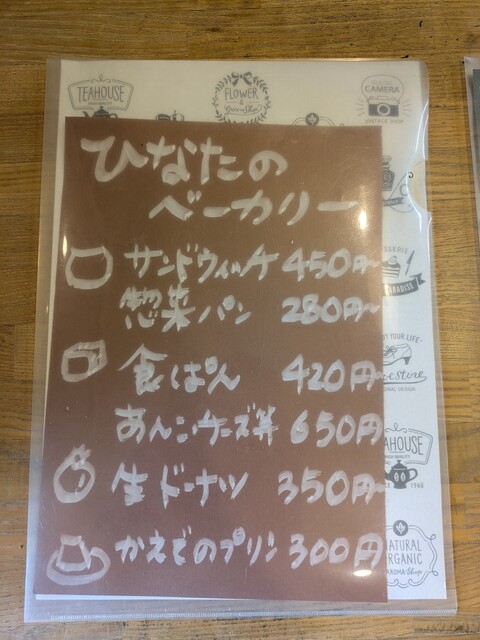 TEAHOUSE
FLOWER
&
Green Shop
CAMERA
VINTAGE SHOP
ひなたの
ベーカリー
サンドウィッチ 450円~
惣菜パン 280円~
食ぱん 420円~
あんこチーズ丼 650円
生ドーナツ 350円~
かえでのプリン 300円
SSERIE
RADISE
YOUR LIFE-
Store
AHOUSE
1968
NATURAL
ORGANIC
AROMA Shop